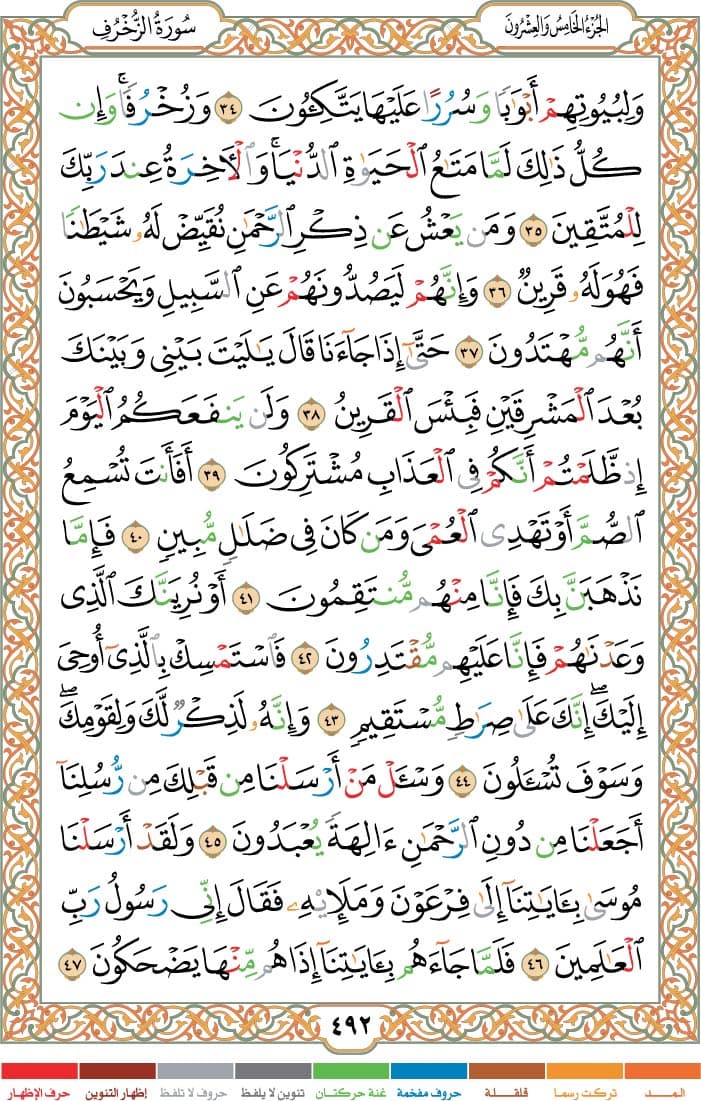 الجُزْءُ الخَامِسُ وَالعِشْرُونَ
سُورَةُ الزُّخْرُفِ
وَلِبُيُوتِهِمْ أَبْوَٰبًا وَسُرُرًا عَلَيْهَا يَتَّكِـُٔونَ ٣٤ وَزُخْرُفًا ۚ وَإِن
كُلُّ ذَٰلِكَ لَمَّا مَتَٰعُ الْحَيَوٰةِ الدُّنْيَا ۚ وَالْـَٔاخِرَةُ عِندَ رَبِّكَ
لِلْمُتَّقِينَ ٣٥ وَمَن يَعْشُ عَن ذِكْرِ الرَّحْمَٰنِ نُقَيِّضْ لَهُۥ شَيْطَٰنًا
فَهُوَ لَهُۥ قَرِينٌ ٣٦ وَإِنَّهُمْ لَيَصُدُّونَهُمْ عَنِ السَّبِيلِ وَيَحْسَبُونَ
أَنَّهُم مُّهْتَدُونَ ٣٧ حَتَّىٰٓ إِذَا جَآءَنَا قَالَ يَٰلَيْتَ بَيْنِى وَبَيْنَكَ
بُعْدَ الْمَشْرِقَيْنِ فَبِئْسَ الْقَرِينُ ٣٨ وَلَن يَنفَعَكُمُ الْيَوْمَ
إِذ ظَّلَمْتُمْ أَنَّكُمْ فِى الْعَذَابِ مُشْتَرِكُونَ ٣٩ أَفَأَنتَ تُسْمِعُ
الصُّمَّ أَوْ تَهْدِى الْعُمْىَ وَمَن كَانَ فِى ضَلَٰلٍ مُّبِينٍ ٤٠ فَإِمَّا
نَذْهَبَنَّ بِكَ فَإِنَّا مِنْهُم مُّنتَقِمُونَ ٤١ أَوْ نُرِيَنَّكَ الَّذِى
وَعَدْنَٰهُمْ فَإِنَّا عَلَيْهِم مُّقْتَدِرُونَ ٤٢ فَاسْتَمْسِكْ بِالَّذِىٓ أُوحِىَ
إِلَيْكَ ۖ إِنَّكَ عَلَىٰ صِرَٰطٍ مُّسْتَقِيمٍ ٤٣ وَإِنَّهُۥ لَذِكْرٌ لَّكَ وَلِقَوْمِكَ ۖ
وَسَوْفَ تُسْـَٔلُونَ ٤٤ وَسْـَٔلْ مَنْ أَرْسَلْنَا مِن قَبْلِكَ مِن رُّسُلِنَآ
أَجَعَلْنَا مِن دُونِ الرَّحْمَٰنِ ءَالِهَةً يُعْبَدُونَ ٤٥ وَلَقَدْ أَرْسَلْنَا
مُوسَىٰ بِـَٔايَٰتِنَآ إِلَىٰ فِرْعَوْنَ وَمَلَإِيْهِۦ فَقَالَ إِنِّى رَسُولُ رَبِّ
الْعَٰلَمِينَ ٤٦ فَلَمَّا جَآءَهُم بِـَٔايَٰتِنَآ إِذَا هُم مِّنْهَا يَضْحَكُونَ ٤٧
٤٩٢
المـــد تركت رسما قلقلة حروف مفخمة غنة حركتان تنوين لا يلفظ حروف لا تلفظ إظهار التنوين حرف الإظهار